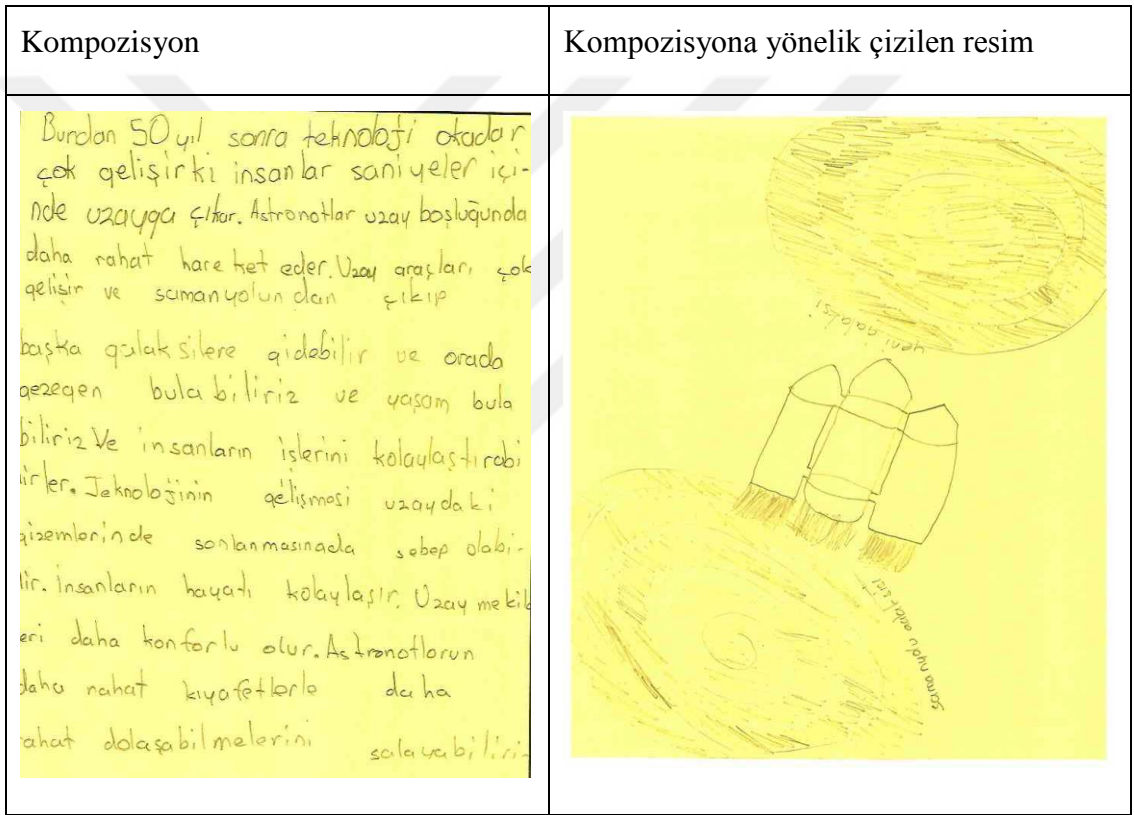 Kompozisyon
Kompozisyona yönelik çizilen resim
Bundan 50 yıl sonra teknoloji okadar
çok gelişirki insanlar saniyeler içi-
nde uzayga çıkar. Astronotlar uzay boşluğunda
daha rahat hareket eder. Uzay araçları çok
gelişir ve samanyolundan çıkıp
başka galaksilere gidebilir ve orada
gezegen bulabiliriz ve yaşam bula
biliriz Ve insanların işlerini kolaylaştırabi
lirler. Teknolojinin gelişmesi uzaydaki
gizemlerinde sonlanmasınada sebep olabi-
lir. İnsanların hayatı kolaylaşır. Uzay mekik
eri daha konforlu olur. Astronotlorun
daha rahat kıyafetlerle daha
rahat dolaşabilmelerini salayabiliri-
yeni galaksi
samanyolu galaksisi